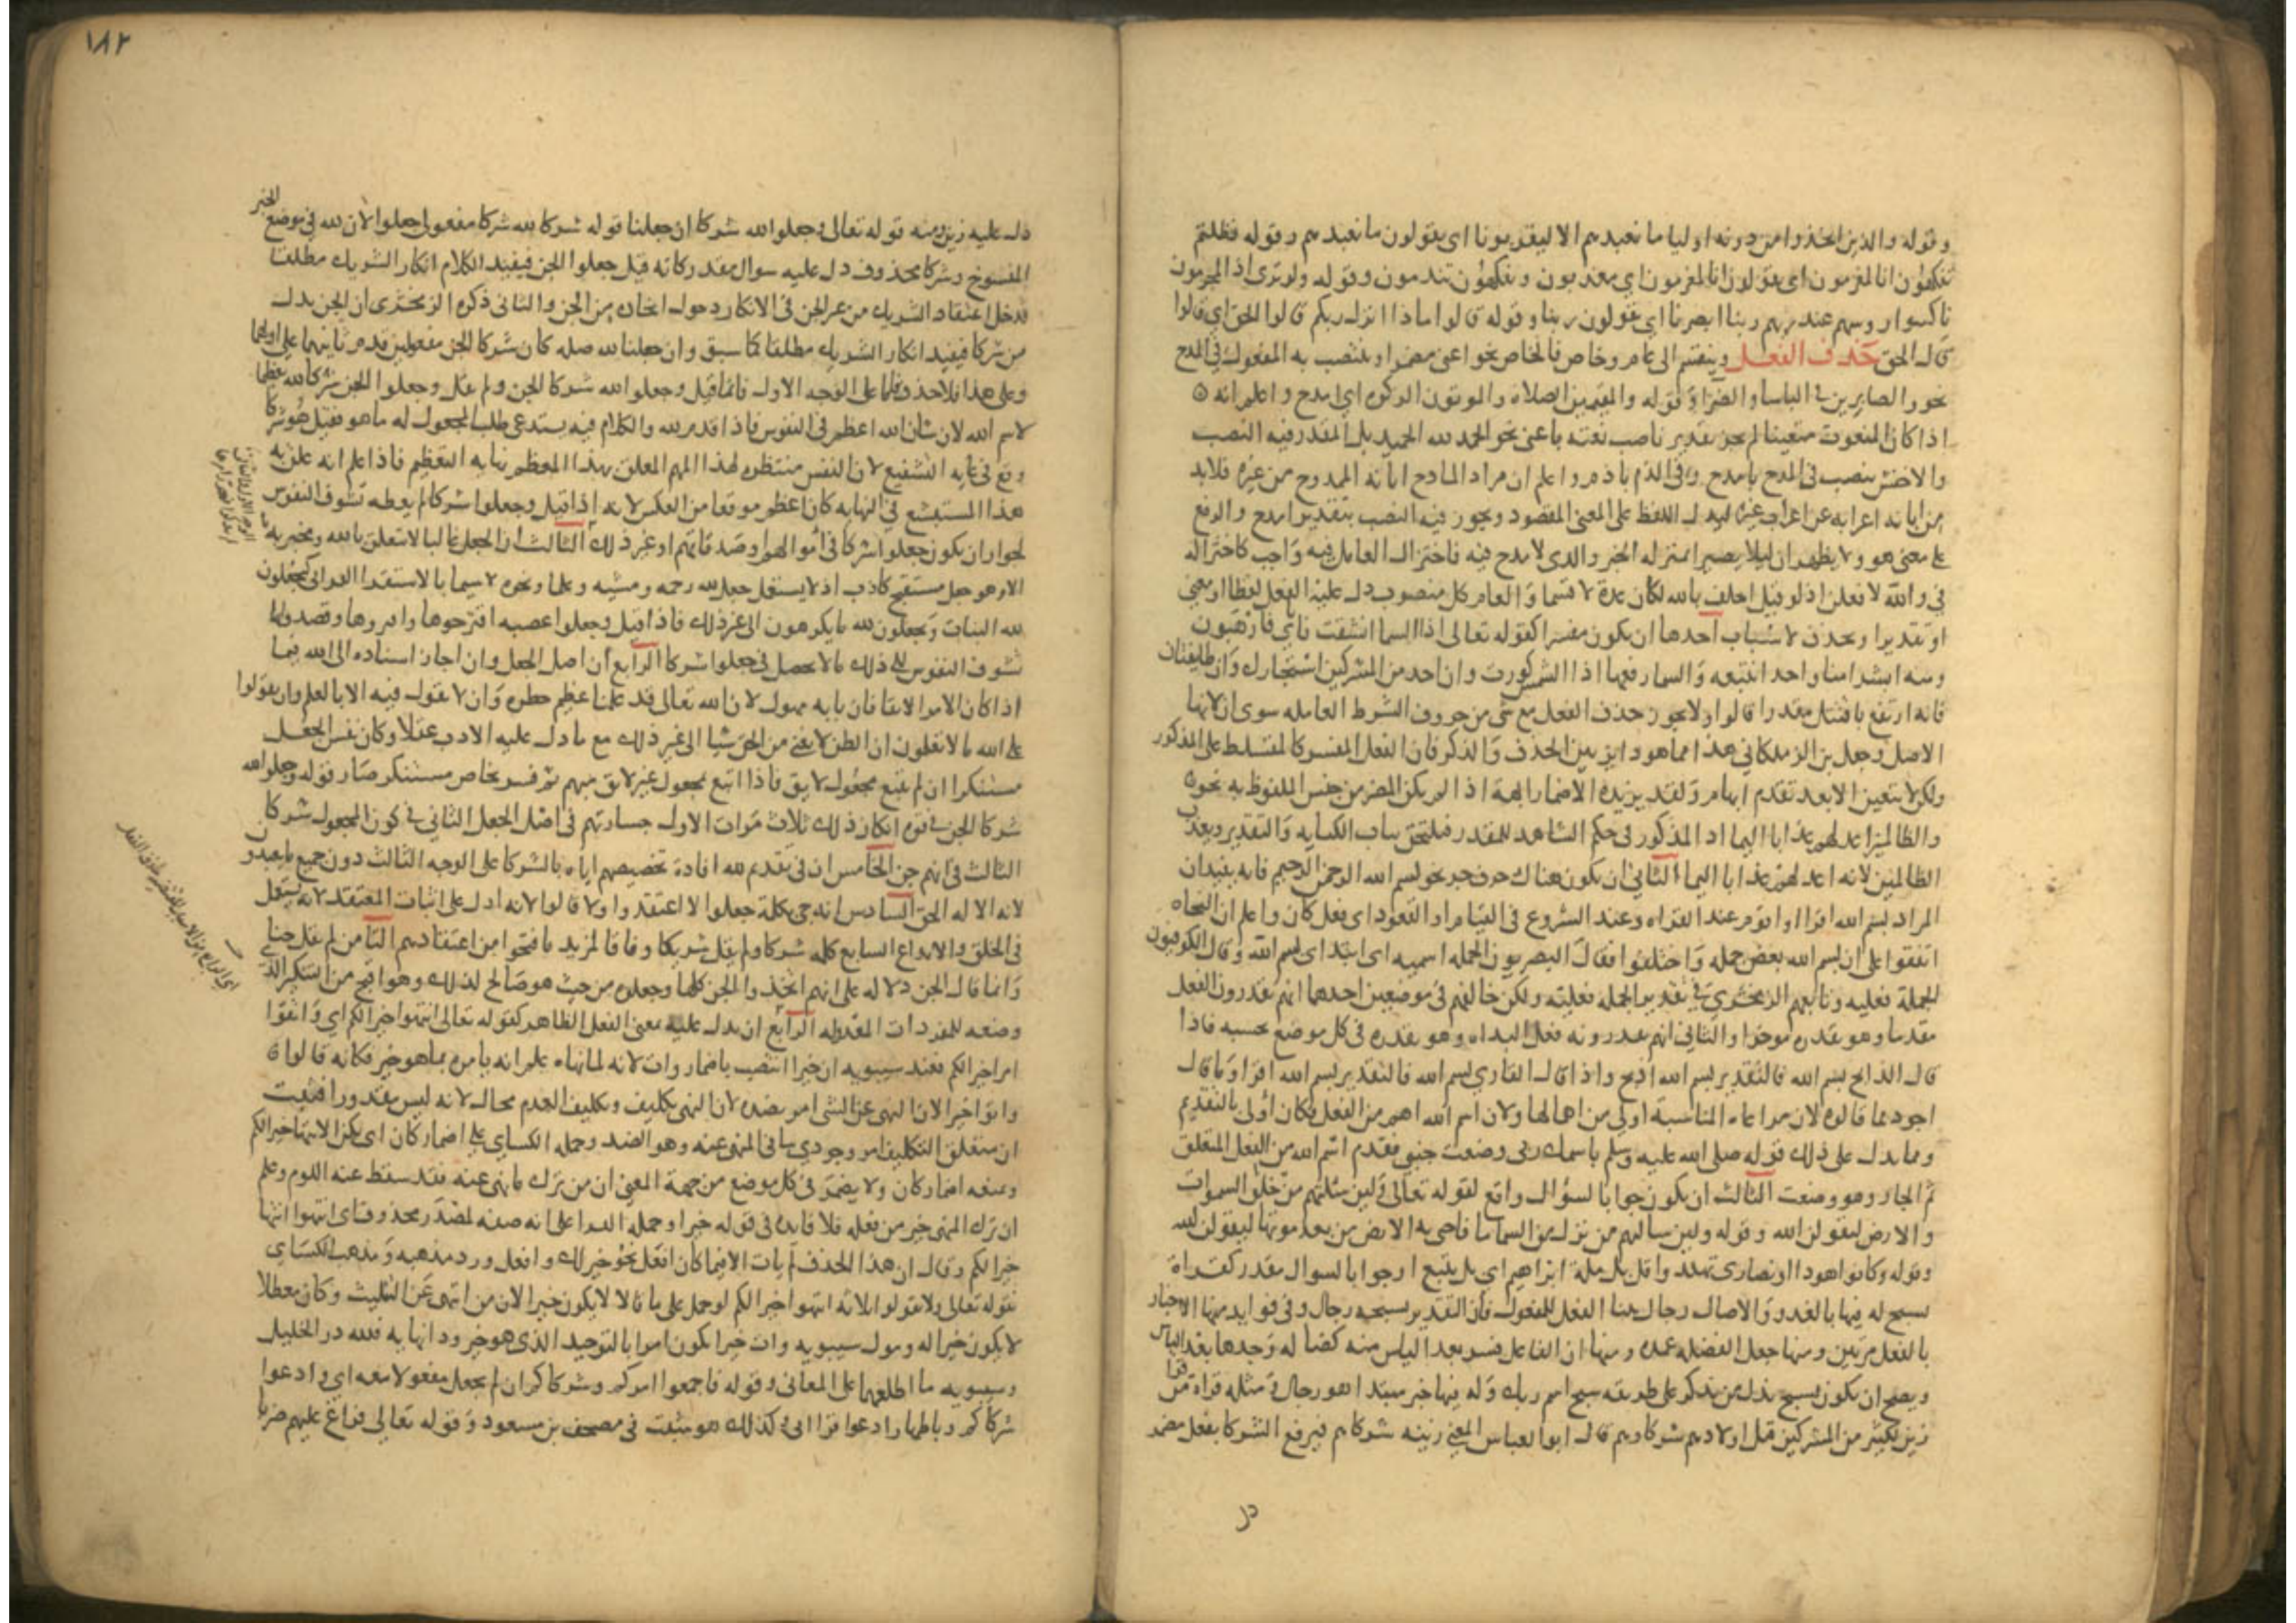 وقوله والذين اتخذوا من دونه اوليا ما نعبدهم الا ليقربونا اي يقولون ما نعبدهم وقوله فظلتم
تفكهون انا لمغرمون اي يقولون انا لمغرمون اي معذبون وتفكهون تندمون وقوله ولو ترى اذ المجرمون
ناكسوا روسهم عند ربهم ربنا ابصرنا اي يقولون ربنا وقوله قالوا ماذا انزل ربكم قالوا الحق اي قالوا
قال الحق حذف الفعل وينقسم الى عام وخاص فالخاص نحو اعني مضمرا وينتصب به المفعول في المدح
نحو والصابرين في الباسا والضرا وقوله والمقيمين الصلاة والموتون الزكوه اي امدح واعلم انه
اذا كان المنعوت متعينا لم يجز تقدير ناصب نعته باعني نحو الحمد لله الحميد بل المقدر فيه النصب
والاخفش ينصب في المدح بامدح وفي الذم باذم واعلم ان مراد المادح ابانة الممدوح من غيره فلابد
من ابانه اعرابه عن اعراب غيره ليدل اللفظ على المعنى المقصود ويجوز فيه النصب بتقدير امدح والرفع
على معنى هو ولا يظهران ليلا يصيرا بمنزله الخبر والذى لا مدح فيه فاختزال العامل فيه واجب كاختزاله
في والله لافعلن اذ لو قيل احلف بالله لكان عدة لا قسما والعام كل منصوب دل عليه الفعل لفظا او معنى
او تقديرا ويحذف لاسباب احدها ان يكون مفسرا كقوله تعالى اذا السما انشقت فاياي فارهبون
ومنه ابشرا منا واحدا نتبعه والسما رفعها اذا الشمس كورت وان احد من المشركين استجارك وان طايفتان
فانه ارتفع باقتتل مقدرا قالوا ولا يجوز حذف الفعل مع شي من حروف الشرط العامله سوى ان لانها
الاصل وجعل بن الزملكاني هذا مما هو داير بين الحذف والذكر فان الفعل المفسر كالمتسلط على المذكور
ولكن لا يتعين الا بعد تقدم ابهام ولقد يزيده الاضمار ابهاما اذا لم يكن المضمر من جنس الملفوظ به نحو
والظالمين اعد لهم عذابا اليما اذ المذكور في حكم الشاهد للمقدر فيلتحق بباب الكنايه والتقدير ويعذب
الظالمين لانه اعد لهم عذابا اليما الثاني ان يكون هناك حرف جر نحو بسم الله الرحمن الرحيم فانه يفيد ان
المراد بسم الله اقرا او اقوم عند القراه وعند الشروع في القيام او القعود اي فعل كان واعلم ان النحاه
اتفقوا على ان بسم الله بعض جمله واختلفوا فقال البصريون الجمله اسميه اي ابتداى بسم الله وقال الكوفيون
الجملة فعليه وتابعهم الزمخشري في تقدير الجمله فعليه ولكن خالفهم في موضعين احدهما انهم يقدرون الفعل
مقدما وهو يقدره موخرا والثاني انهم يقدرونه فعل البداه وهو يقدره في كل موضع بحسبه فاذا
قال الذابح بسم الله فالتقدير بسم الله اذبح واذا قال القاري بسم الله فالتقدير بسم الله اقرا وما قال
اجود مما قالوه لان مراعاه المناسبة اولى من اهمالها ولان اسم الله اهم من الفعل فكان اولى بالتقديم
ومما يدل على ذلك قوله صلى الله عليه وسلم باسمك ربي وضعت جنبي فقدم اسم الله من الفعل المتعلق
ثم الجار وهو وضعت الثالث ان يكون جوابا لسؤال واقع لقوله تعالى ولين سئلتهم من خلق السموات
والارض ليقولن الله وقوله ولين سالتهم من نزل من السما ما فاحيى به الارض من بعد موتها ليقولن الله
وقوله وكانوا هودا او نصارى تهتدوا قل بل ملة ابراهيم اي بل يتبع او جوابا لسوال مقدر كقراة
يسبح له فيها بالغدو والاصال رجال ببنا الفعل للمفعول فان التقدير يسبحه رجال وفي فوايد منها الاخبار
بالفعل مرتين ومنها جعل الفضله عمده ومنها ان الفاعل فسر بعد الياس منه كضالة وجدها بعد الياس
ويصح ان يكون يسبح بدل من يذكر على طريقه سبح اسم ربك وله فيها خبر مبتدا هو رجال ومثله قراة من قرا
زين لكثير من المشركين قتل اولادهم شركاوهم قال ابو العباس المعنى زينه شركاهم فيرفع الشركا بفعل مضمر
دل
١٨٢
دل عليه زين ومنه قوله تعالى وجعلوا لله شركا ان جعلنا قوله شركا لله شركا مفعولي جعلوا لان لله في موضع الخبر
المنسوخ وشركا محذوف دل عليه سوال مقدر وكانه قيل جعلوا الجن فيفيد الكلام انكار الشريك مطلقا
فدخل اعتقاد الشريك من غير الجن في الانكار دخول اتخاذه من الجن والثاني ذكره الزمخشري ان الجن بدل
من شركا فيفيد انكار الشريك مطلقا كما سبق وان جعلنا لله صله كان شركا الجن مفعولين قدم ثانيهما على اولهما
وعلى هذا فلا حذف فاما على الوجه الاول فانما قيل وجعلوا لله شركا الجن ولم يقل وجعلوا الجن شركا لله تعظيما
لاسم الله لان شان الله اعظم في النفوس فاذا قدم لله والكلام فيه يستدعي طلب المجعول له ما هو فقيل هو شركا
وقع في غايه التشنيع لان النفس منتظره لهذا المهم المعلق بهذا المعظم نهايه التعظيم فاذا علم انه علق به
هذا المستبشع في النهايه كان اعظم موقعا من العكس لانه اذا قيل وجعلوا شركا لم يعطه تشوف النفوس
لجواز ان يكون جعلوا شركا في اموالهم وصدقاتهم او غير ذلك الثالث ان الجعل غالبا لا يتعلق بالله ويخبر به
الا وهو جعل مستقبح كاذب اذ لا يستعمل جعل لله رحمه ومشيه وعلما ونحوه لاسيما بالاستقرا القراني كيجعلون
لله البنات ويجعلون لله ما يكرهون الى غير ذلك فاذا قيل وجعلوا
تشوف النفوس الى ذلك ما لا يحصل في جعلوا شركا الرابع ان اصل الجعل وان اجاز اسناده الى الله فيما
اذا كان الامر لائقا فان بابه مهول لان الله تعالى قد علمنا عظيم خطره وان لا نقول فيه الا بالعلم وان تقولوا
على الله ما لا تعلمون ان الظن لا يغني من الحق شيا الى غير ذلك مع ما دل عليه الادب عقلا وكان نفس الجعل
مستنكرا ان لم يتبع بمجعول لايق فاذا اتبع بمجعول غير لايق مبهم ثم فسر بخاص مستنكر صار قوله وجعلوا لله
شركا الجن في قوة انكار ذلك ثلاث مرات الاول جسارتهم في اصل الجعل الثاني في كون المجعول شركا
الثالث في انهم جن الخامس ان في تقديم لله افادة تخصيصهم اياه بالشركا على الوجه الثالث دون جميع ما يعبدون
لانه الاله الحق السادس انه جي بكلمة جعلوا لا اعتقدوا ولا قالوا لانه ادل على اثبات المعتقد لانه يستعمل
في الخلق والابداع السابع كلمه شركا ولم يقل شريكا وفاقا لمزيد ما فتحوا من اعتقادهم الثامن لم يقل جنا
وانما قال الجن دلاله على انهم اتخذوا الجن كلها وجعلوه من حيث هو صالح لذلك وهو اقبح من التنكير الذي
وضعه للمفردات المعدوله الرابع ان يدل عليه معنى الفعل الظاهر كقوله تعالى انتهوا خيرا لكم اي واتقوا
امرا خيرا لكم فعند سيبويه ان خيرا انتصب باضمار وات لانه لما نهاه علم انه يامره بما هو خير فكانه قالوا
واتوا خيرا لان النهى عن الشى امر بضده لان النهي تكليف وتكليف العدم محال لانه ليس بمقدور فثبت
ان متعلق التكليف امر وجودي ينافي المنهى عنه وهو الضد وحمله الكساي على اضمار كان اي يكن الانتها خيرا لكم
ومنعه اضمار كان ولا يضمر في كل موضع من جهة المعنى ان من ترك ما نهى عنه فقد سقط عنه اللوم وعلم
ان ترك المنهى خير من فعله فلا فايده في قوله خيرا وحمله الفرا على انه صفه لمصدر محذوف اى انتهوا انتها
خيرا لكم وقال ان هذا الحذف لم يات الا فيما كان افعل نحو خير لك وافعل ورد مذهبه ومذهب الكساي
بقوله تعالى ولا تقولوا ثلاثه انتهوا خيرا لكم لو حمل على ما قالا لا يكون خيرا لان من انتهى عن التثليث وكان معطلا
لا يكون خيرا له وقول سيبويه وات خيرا يكون امرا بالتوحيد الذي هو خير ودانهايه فلله در الخليل
وسيبويه ما اطلعهما على المعاني وقوله فاجمعوا امركم وشركاكم ان لم يجعل مفعولا معه اي وادعوا
شركاكم وباظهار ادعوا قرا ابى وكذلك هو مثبت في مصحف بن مسعود وقوله تعالى فراغ عليهم ضربا